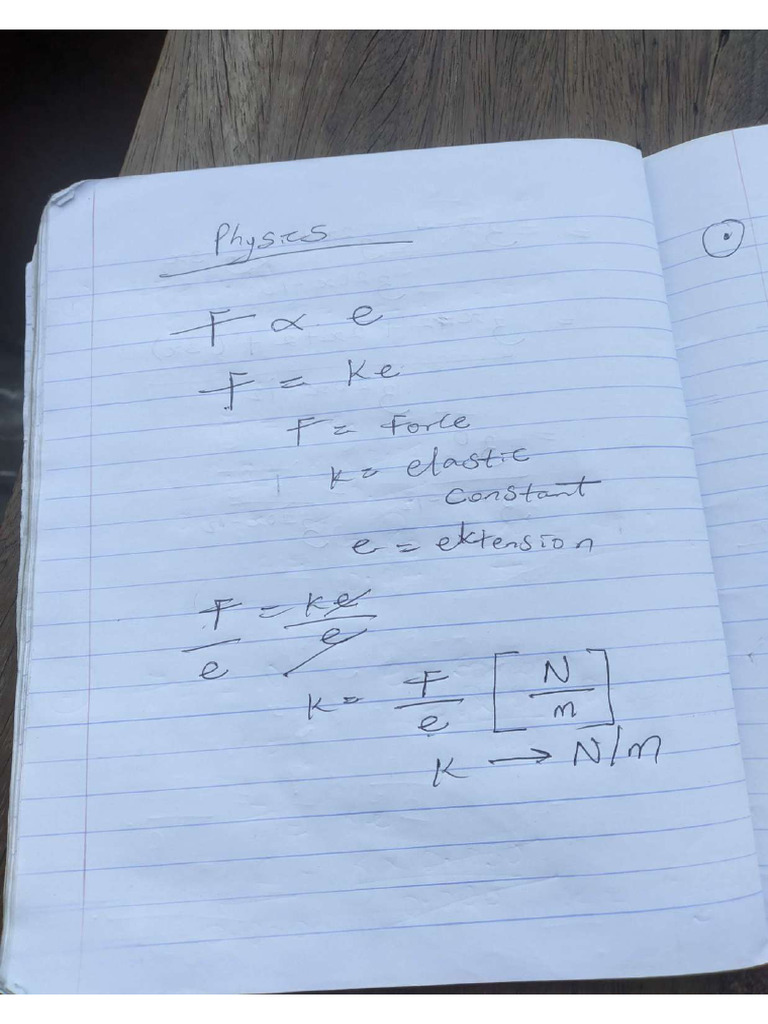 Physics
F ∝ e
F = Ke
F = Force
K = elastic
constant
e = extension
F/e = Ke/e
K = F/e [N/m]
K → N/m